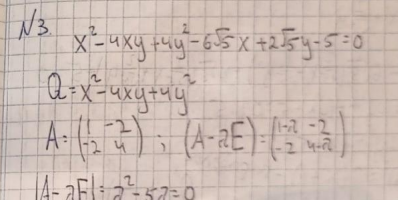 №3.
x²-4xy+4y²-6√5x+2√5y-5=0
Q=x²-4xy+4y²
A=(1 -2
-2 4); (A-λE)=(1-λ -2
-2 4-λ)
|A-λE|=λ²-5λ=0